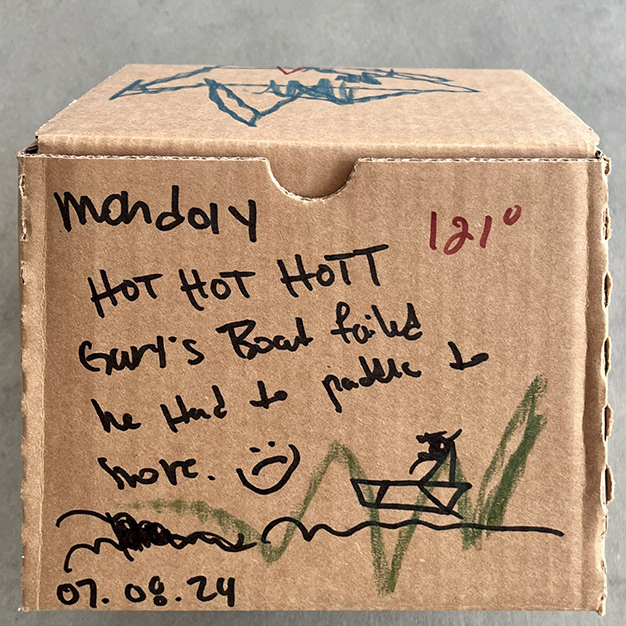 monday
121°
HOT HOT HOTT
Gary's Boat failed
he Had to paddle to
shore.
07.08.24